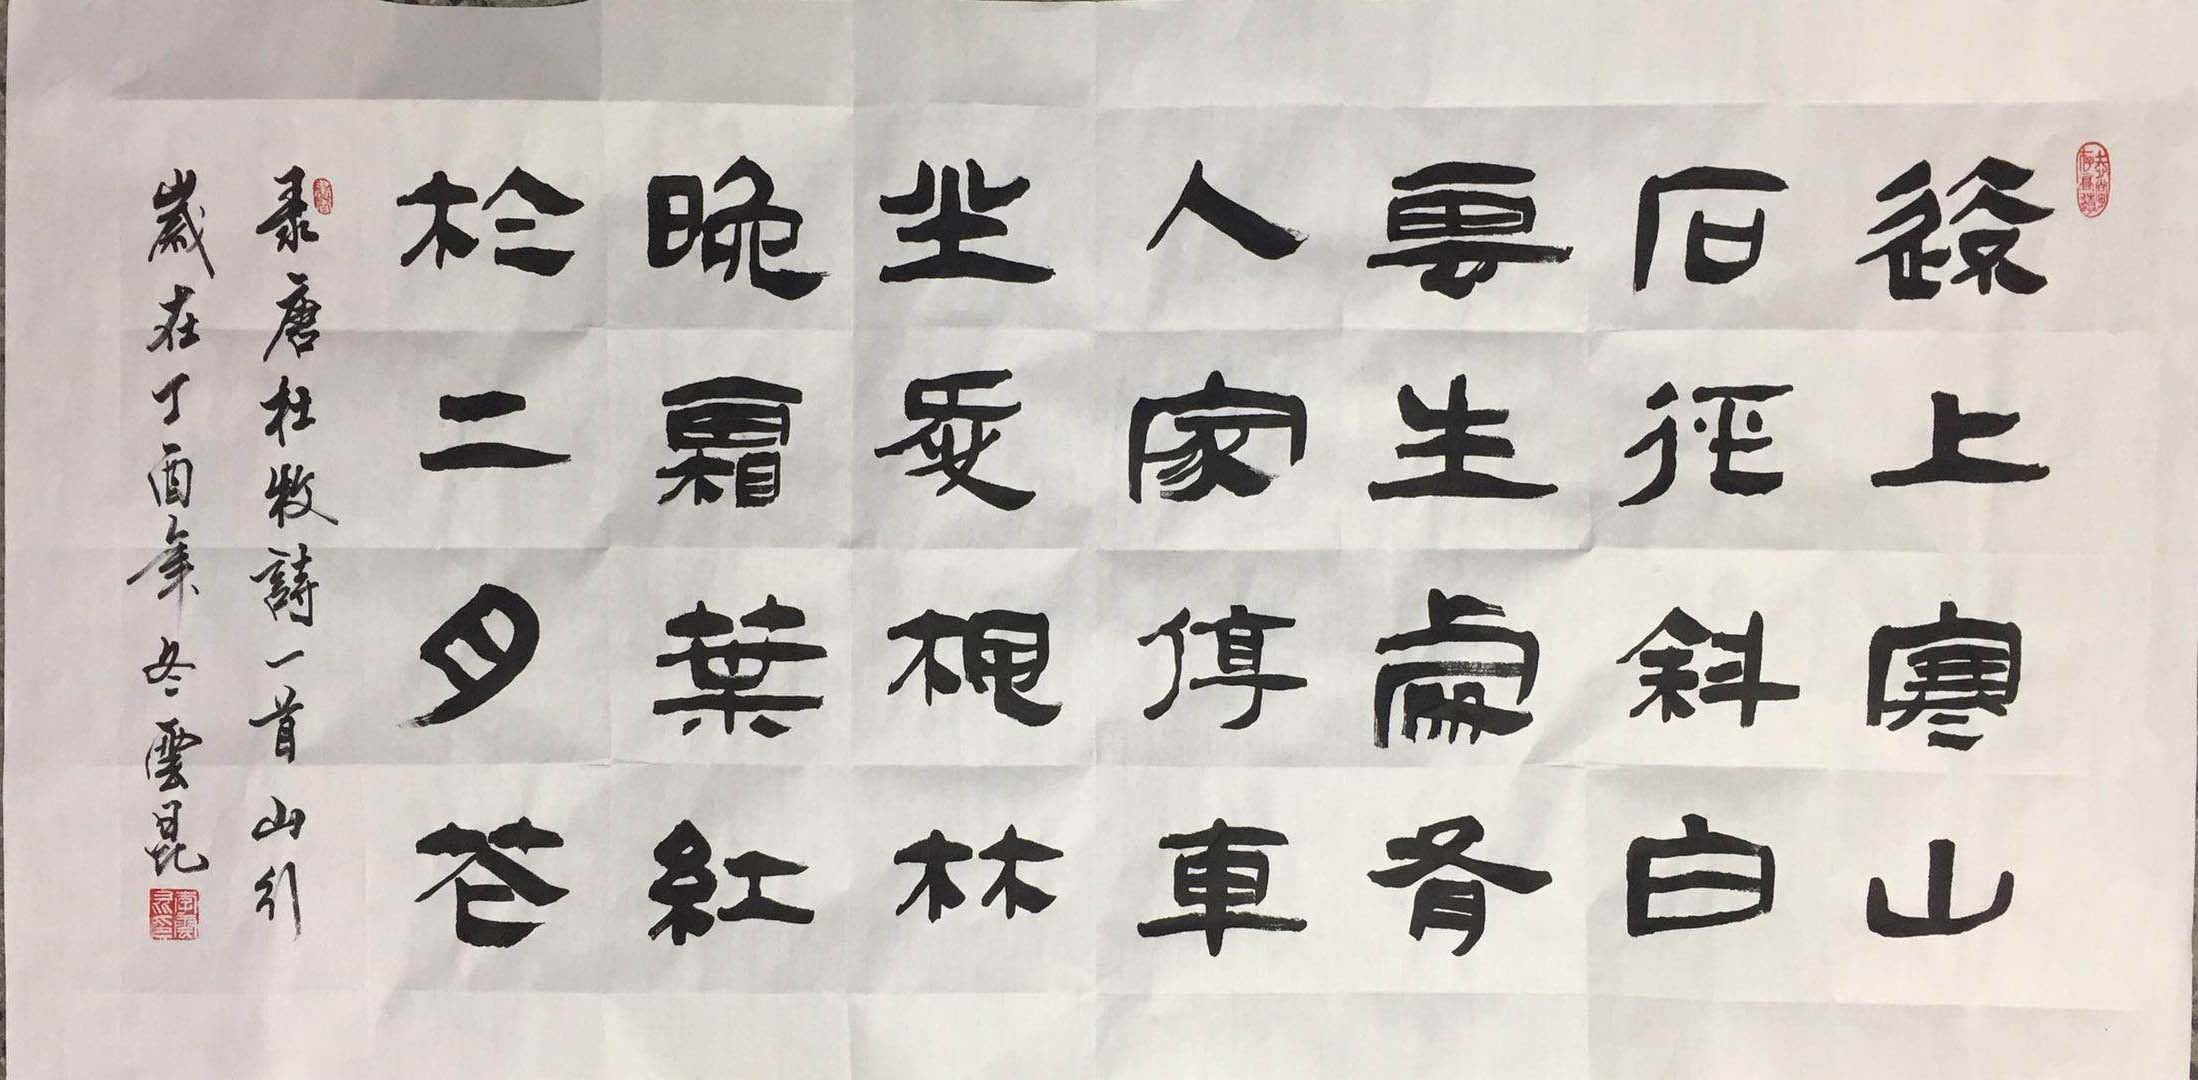 遠上寒山
石徑斜白
雲生處有
人家停車
坐愛楓林
晚霜葉紅
於二月花
录唐杜牧詩一首山行
歲在丁酉年冬雲昆